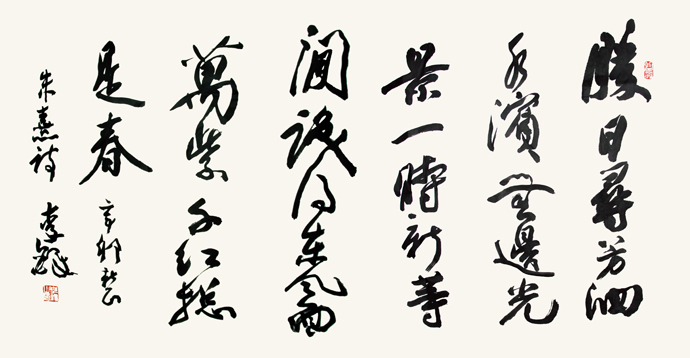 勝日尋芳泗
水濱無邊光
景一時新等
閒識得東風面
萬紫千紅總
是春 辛卯
朱熹詩 李鐸